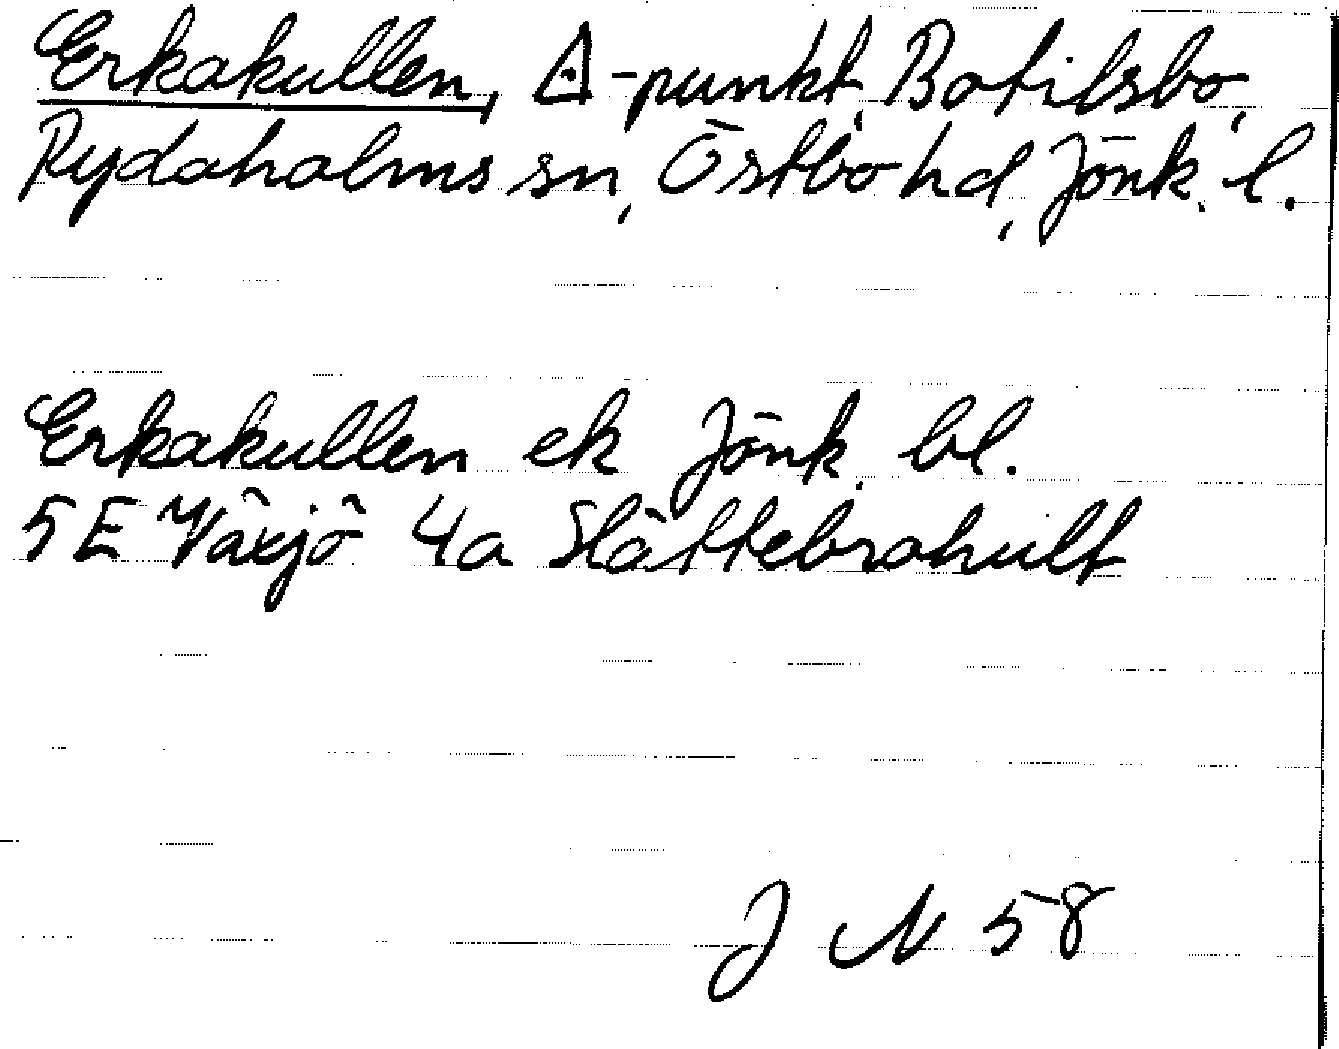 Erkakullen, △-punkt, Botilsbo,
Rydaholms sn, Östbo hd, Jönk. l.
Erkakullen ek Jönk. bl.
5E Växjö 4a Slättebrohult
J N 58